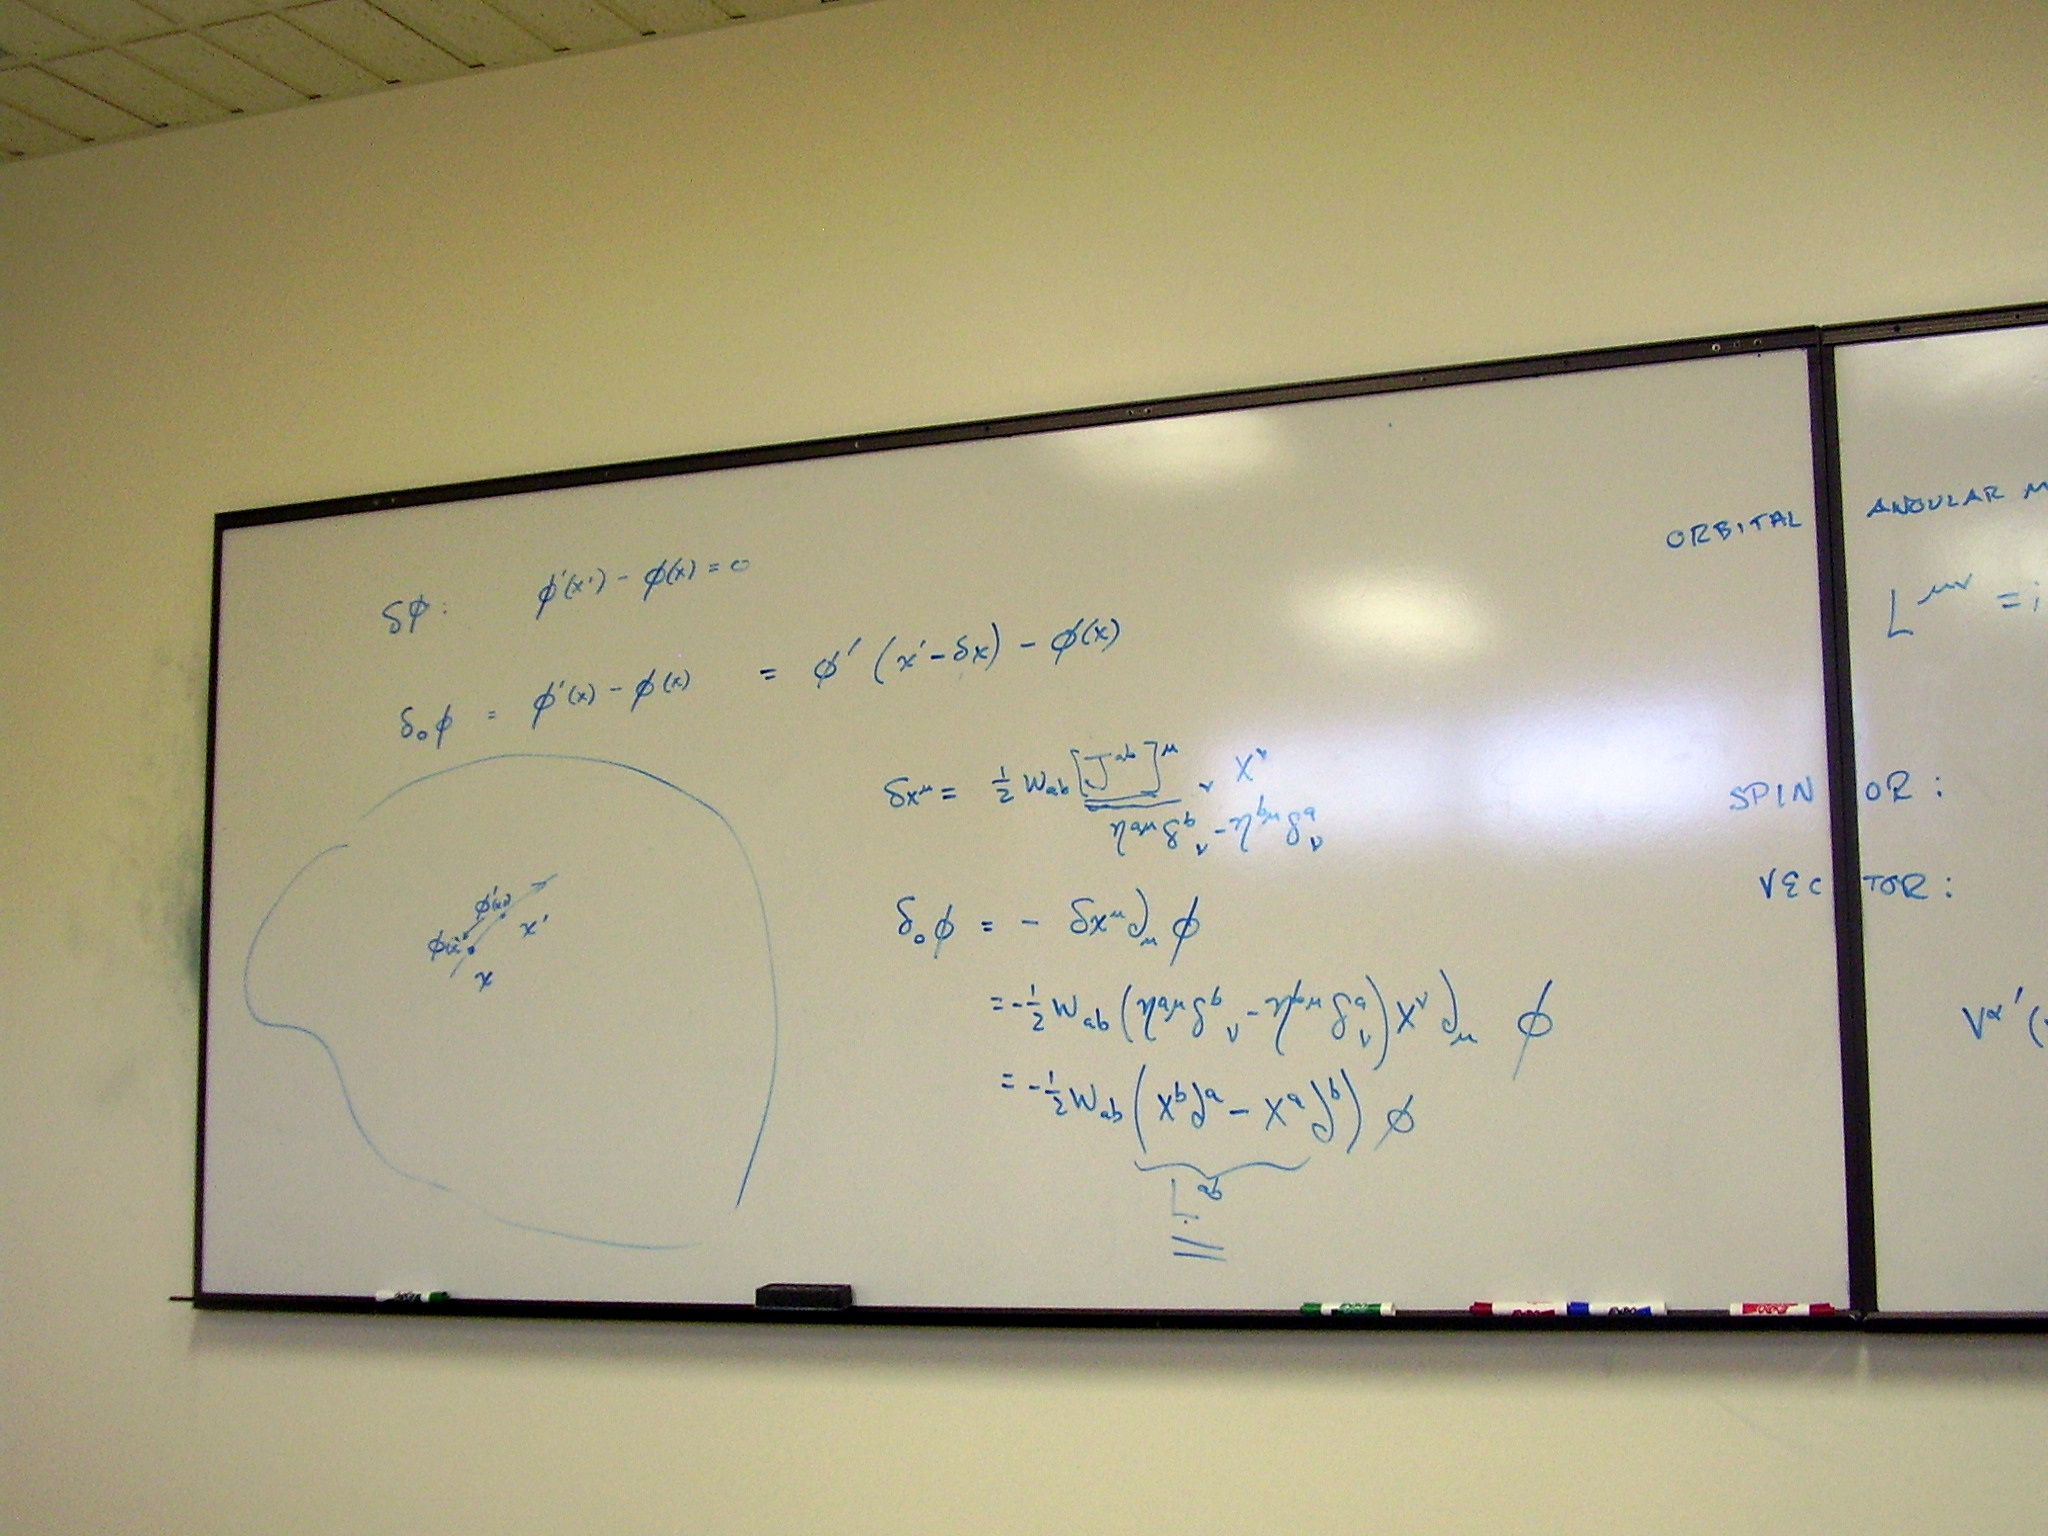 δφ: φ'(x') - φ(x) = 0
δ₀φ = φ'(x) - φ(x) = φ' (x' - δx) - φ(x)
δx^μ = 1/2 W_ab [J^ab]^μ_ν X^ν
η^aμ δ^b_ν - η^bμ δ^a_ν
δ₀φ = - δx^μ ∂_μ φ
= -1/2 W_ab (η^aμ δ^b_ν - η^bμ δ^a_ν) X^ν ∂_μ φ
= -1/2 W_ab (X^b ∂^a - X^a ∂^b) φ
L^ab
φ'(x)
φ(x)
x'
x
ORBITAL ANGULAR M
L^μν = i
SPINOR:
VECTOR:
V^α'(